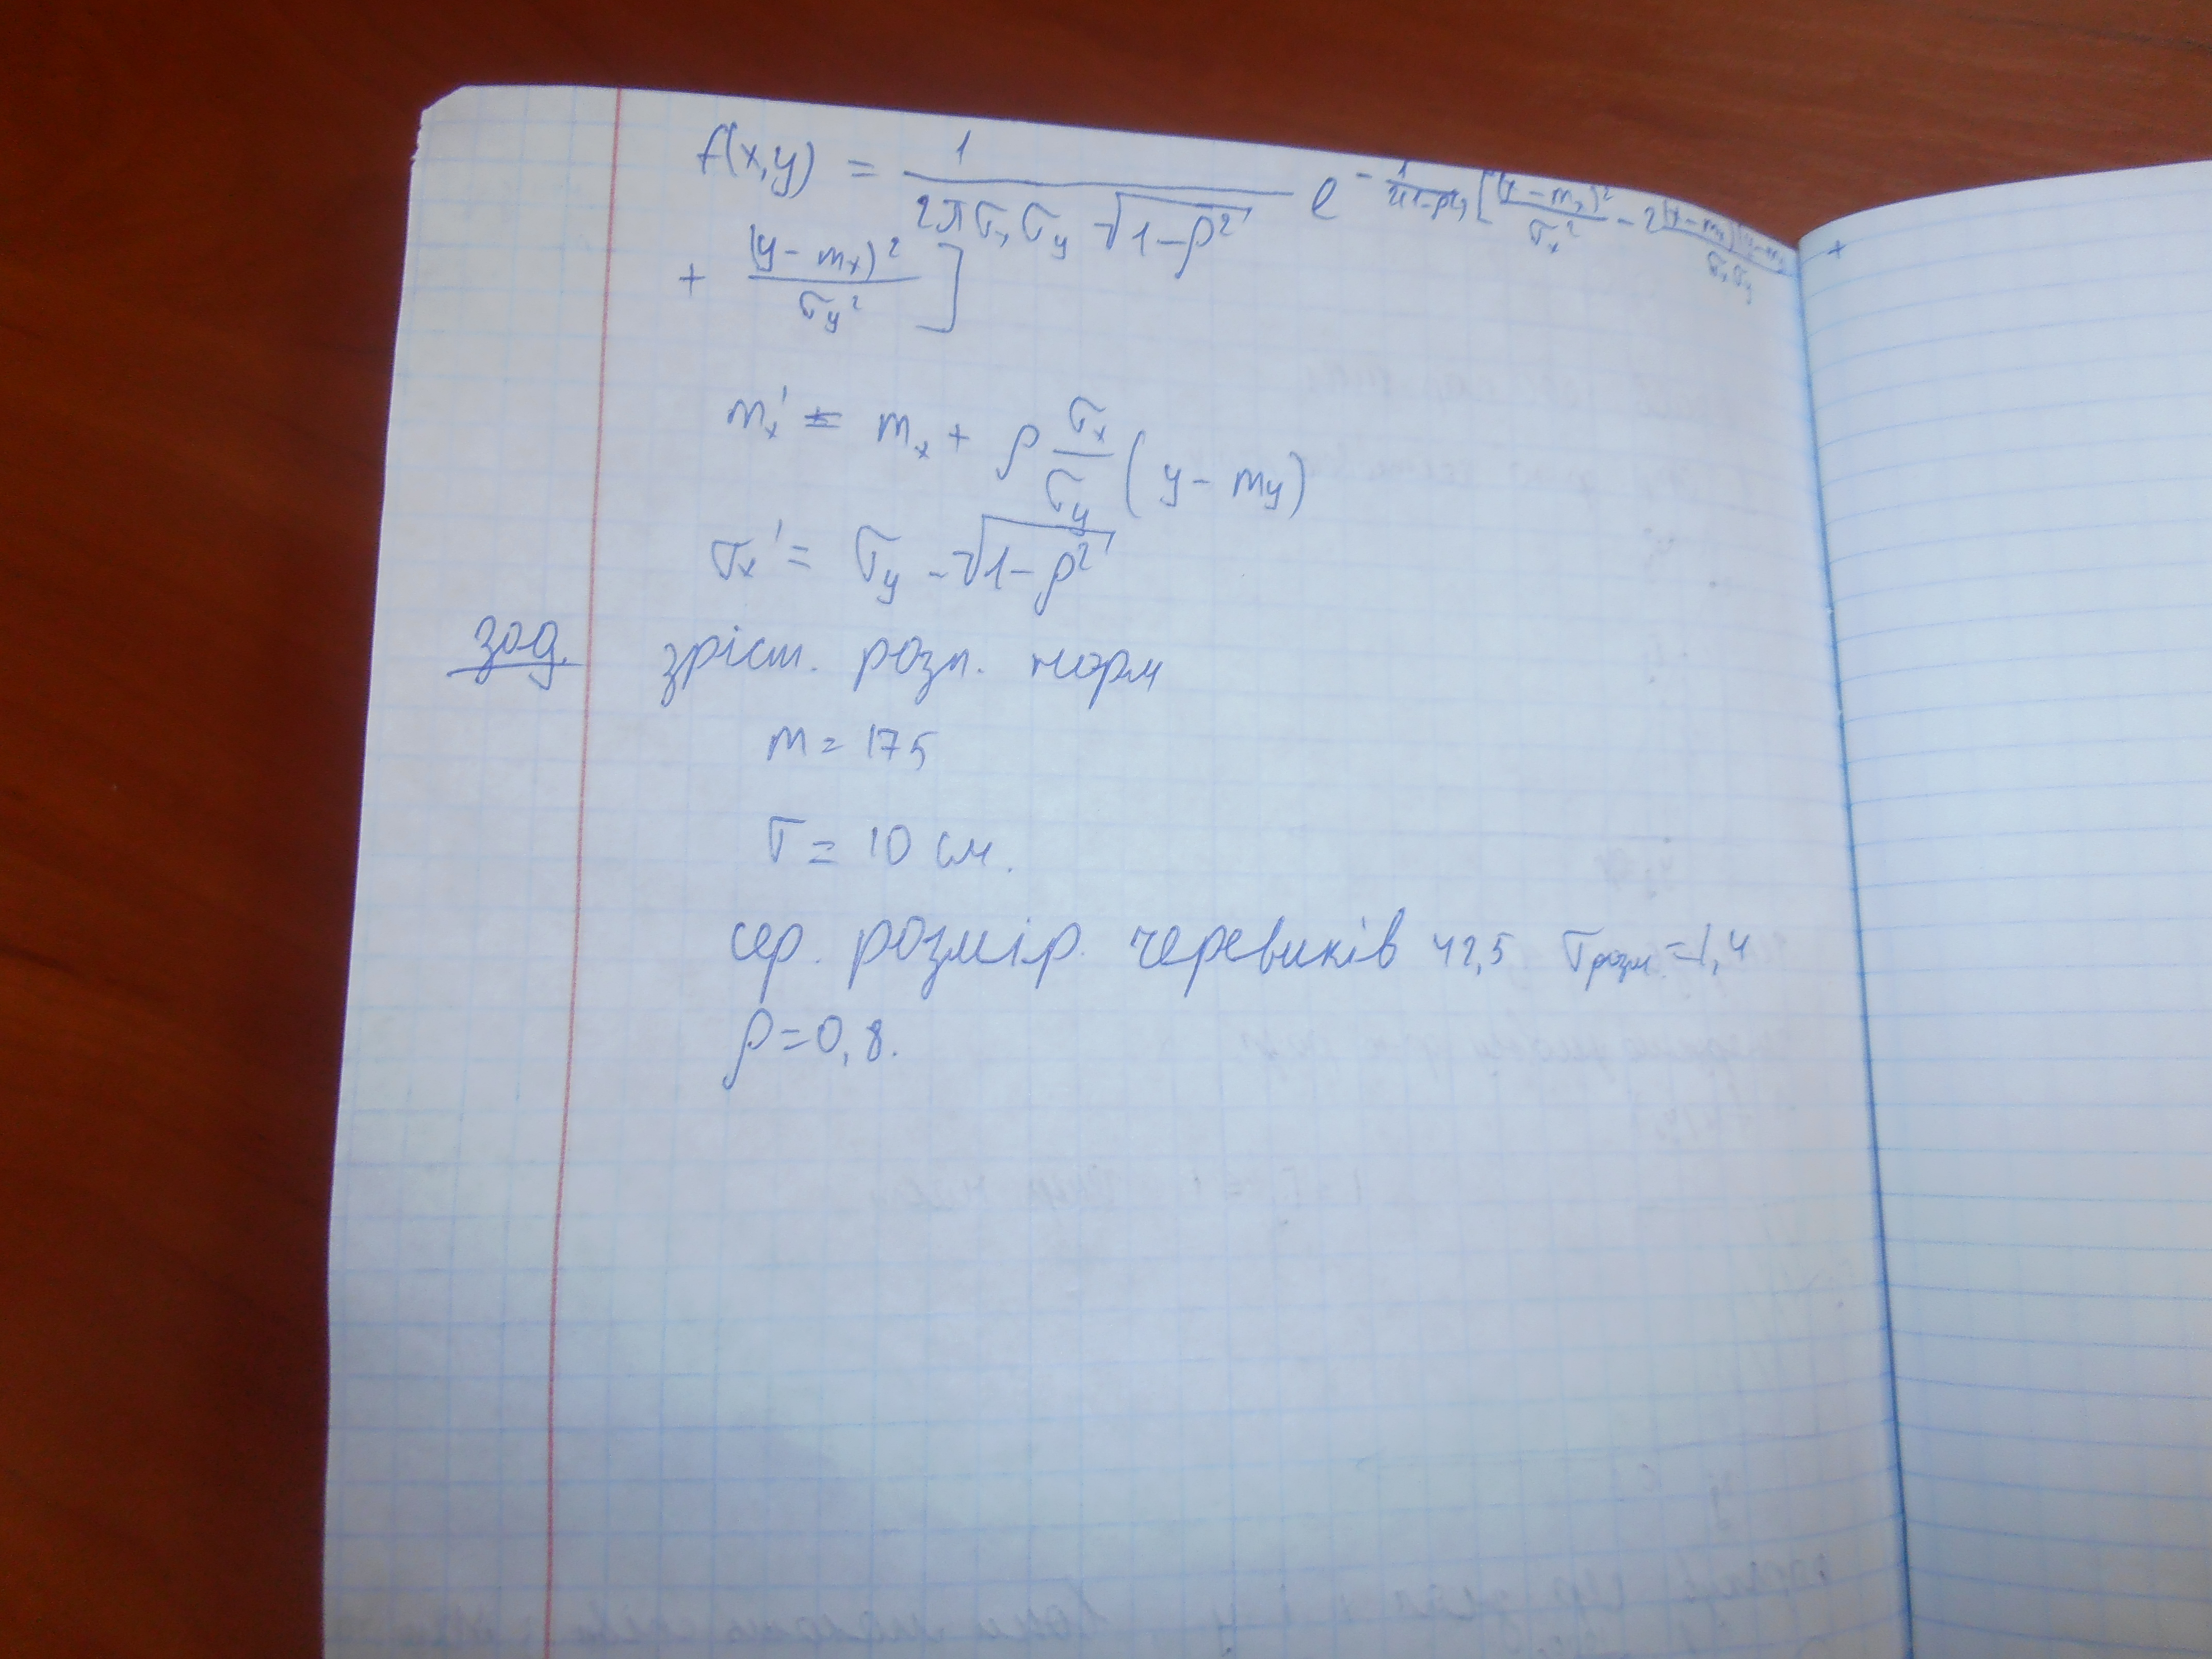 f(x,y) = 1 / (2πσₓσ_y √(1-ρ²)) e^(- 1/(2(1-ρ²)) [(x-mₓ)²/σₓ² - 2(x-mₓ)(y-m_y)/(σₓσ_y)
+ (y-mₓ)²/σ_y² ]
mₓ' = mₓ + ρ σₓ/σ_y (y - m_y)
σₓ' = σ_y - √(1-ρ²)
зад. зріст. розп. норм
m = 175
σ = 10 см.
сер. розмір. черевиків 42,5 σ розм. = 1,4
ρ = 0,8.